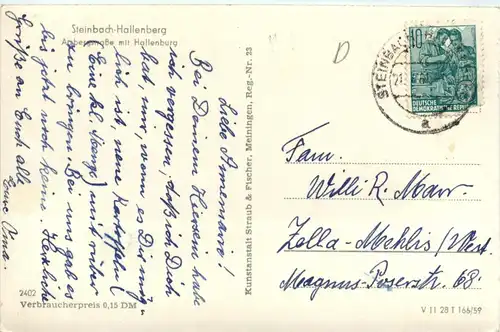 Steinbach-Hallenberg
Arzbergstraße mit Hallenburg
Liebe Annemarie!
Bei Deinem Hiersein habe
ich vergessen, daß ich Dich
bat, mir, wenn es Dir mög-
lich ist, neue Kartoffeln
(Eine kl. Menge) mit rüber
zu bringen. Bei uns gab es
bis jetzt noch keine. Herzliche
Grüße an Euch alle
Eure Oma.
2402
Verbraucherpreis 0,15 DM
Kunstanstalt Straub & Fischer, Meiningen, Reg.-Nr. 23
D
10
DEUTSCHE
DEMOKRATISCHE REPUBLIK
a
Fam.
Willi R. Marr
Zella-Mehlis/West.
Magnus-Poserstr. 68.
V 11 28 T 166/59